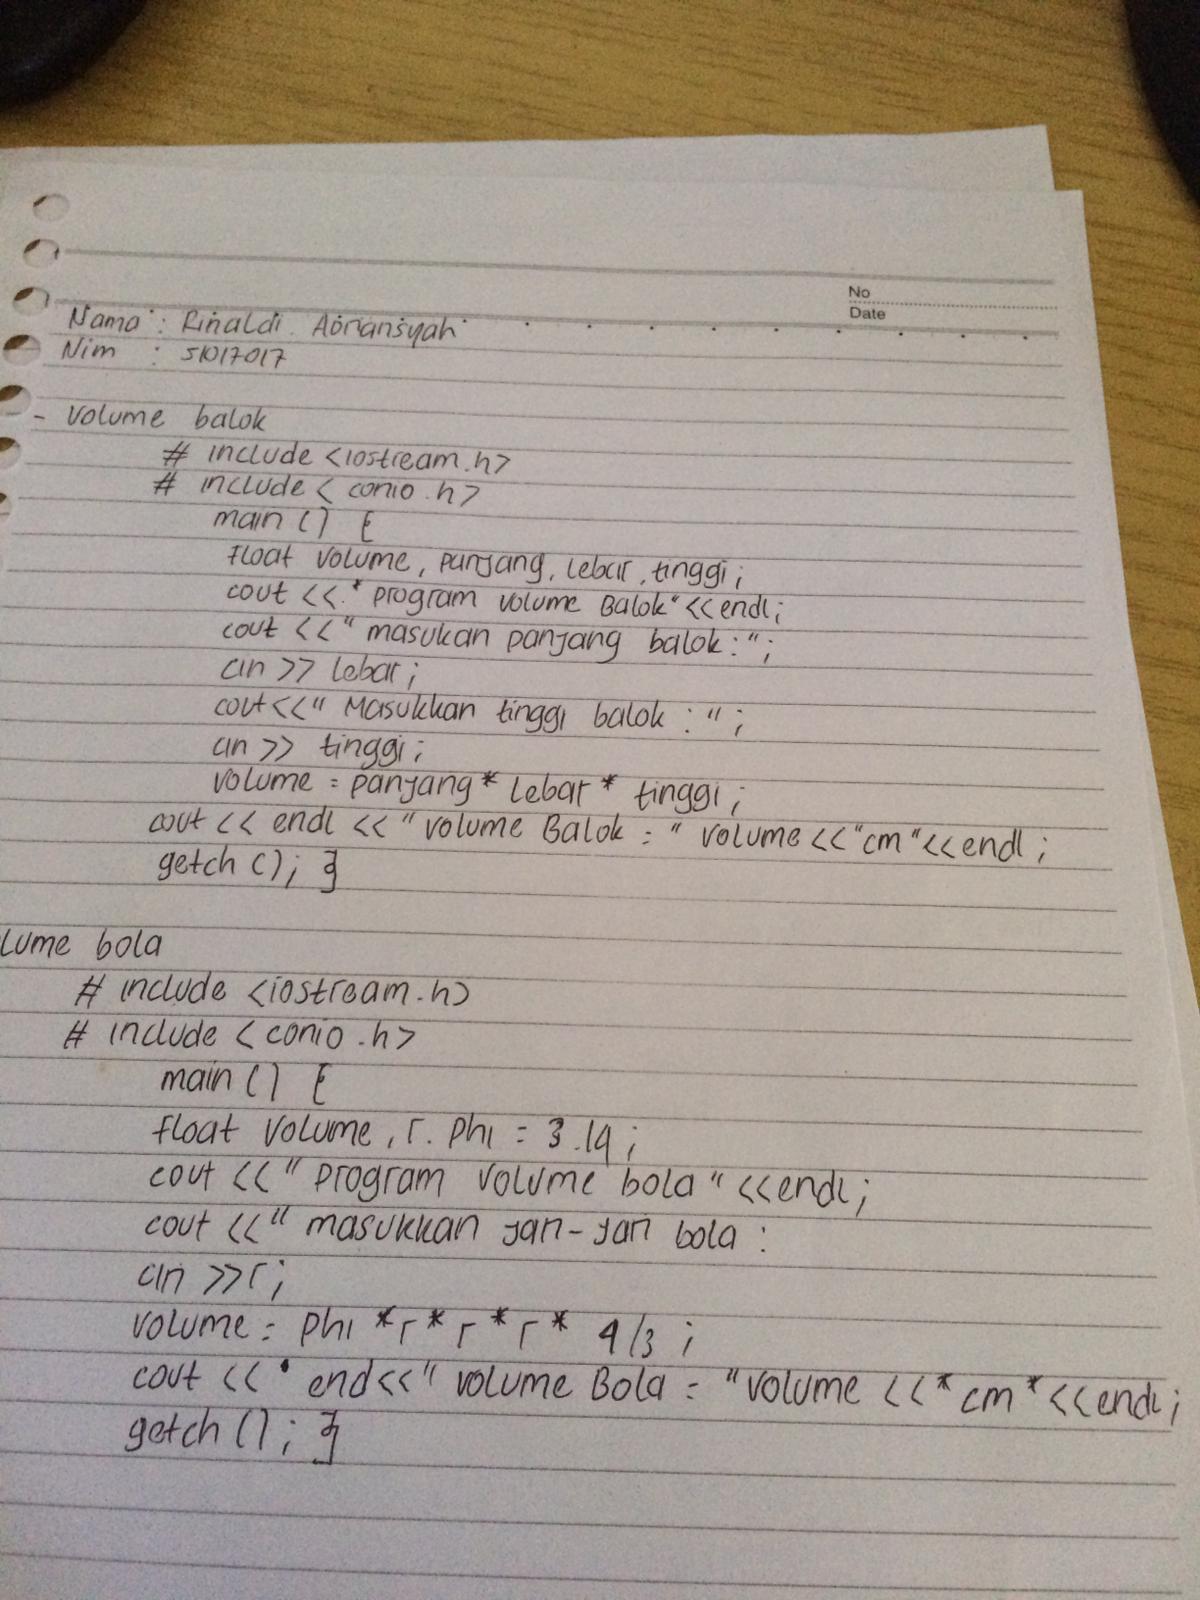 No
Date
Nama : Rinaldi
Nim : 51017017
- Volume balok
# include <iostream.h>
# include < conio.h>
main () {
float volume, panjang, lebar, tinggi;
cout <<" program volume Balok" << endl;
cout <<" masukan panjang balok:";
cin >> lebar;
cout<<" Masukkan tinggi balok : ";
cin >> tinggi;
volume = panjang * lebar * tinggi;
cout << endl << "volume Balok = " volume <<"cm"<< endl;
getch (); }
lume bola
# include <iostream.h>
# include < conio.h>
main () {
float volume, r. phi = 3.14;
cout <<" program volume bola " <<endl;
cout <<" masukkan jari-jari bola :
cin >>r;
volume = phi *r* r *r* 4/3 ;
cout <<" end<<" volume Bola = "volume <<" cm "<<endl;
getch (); }